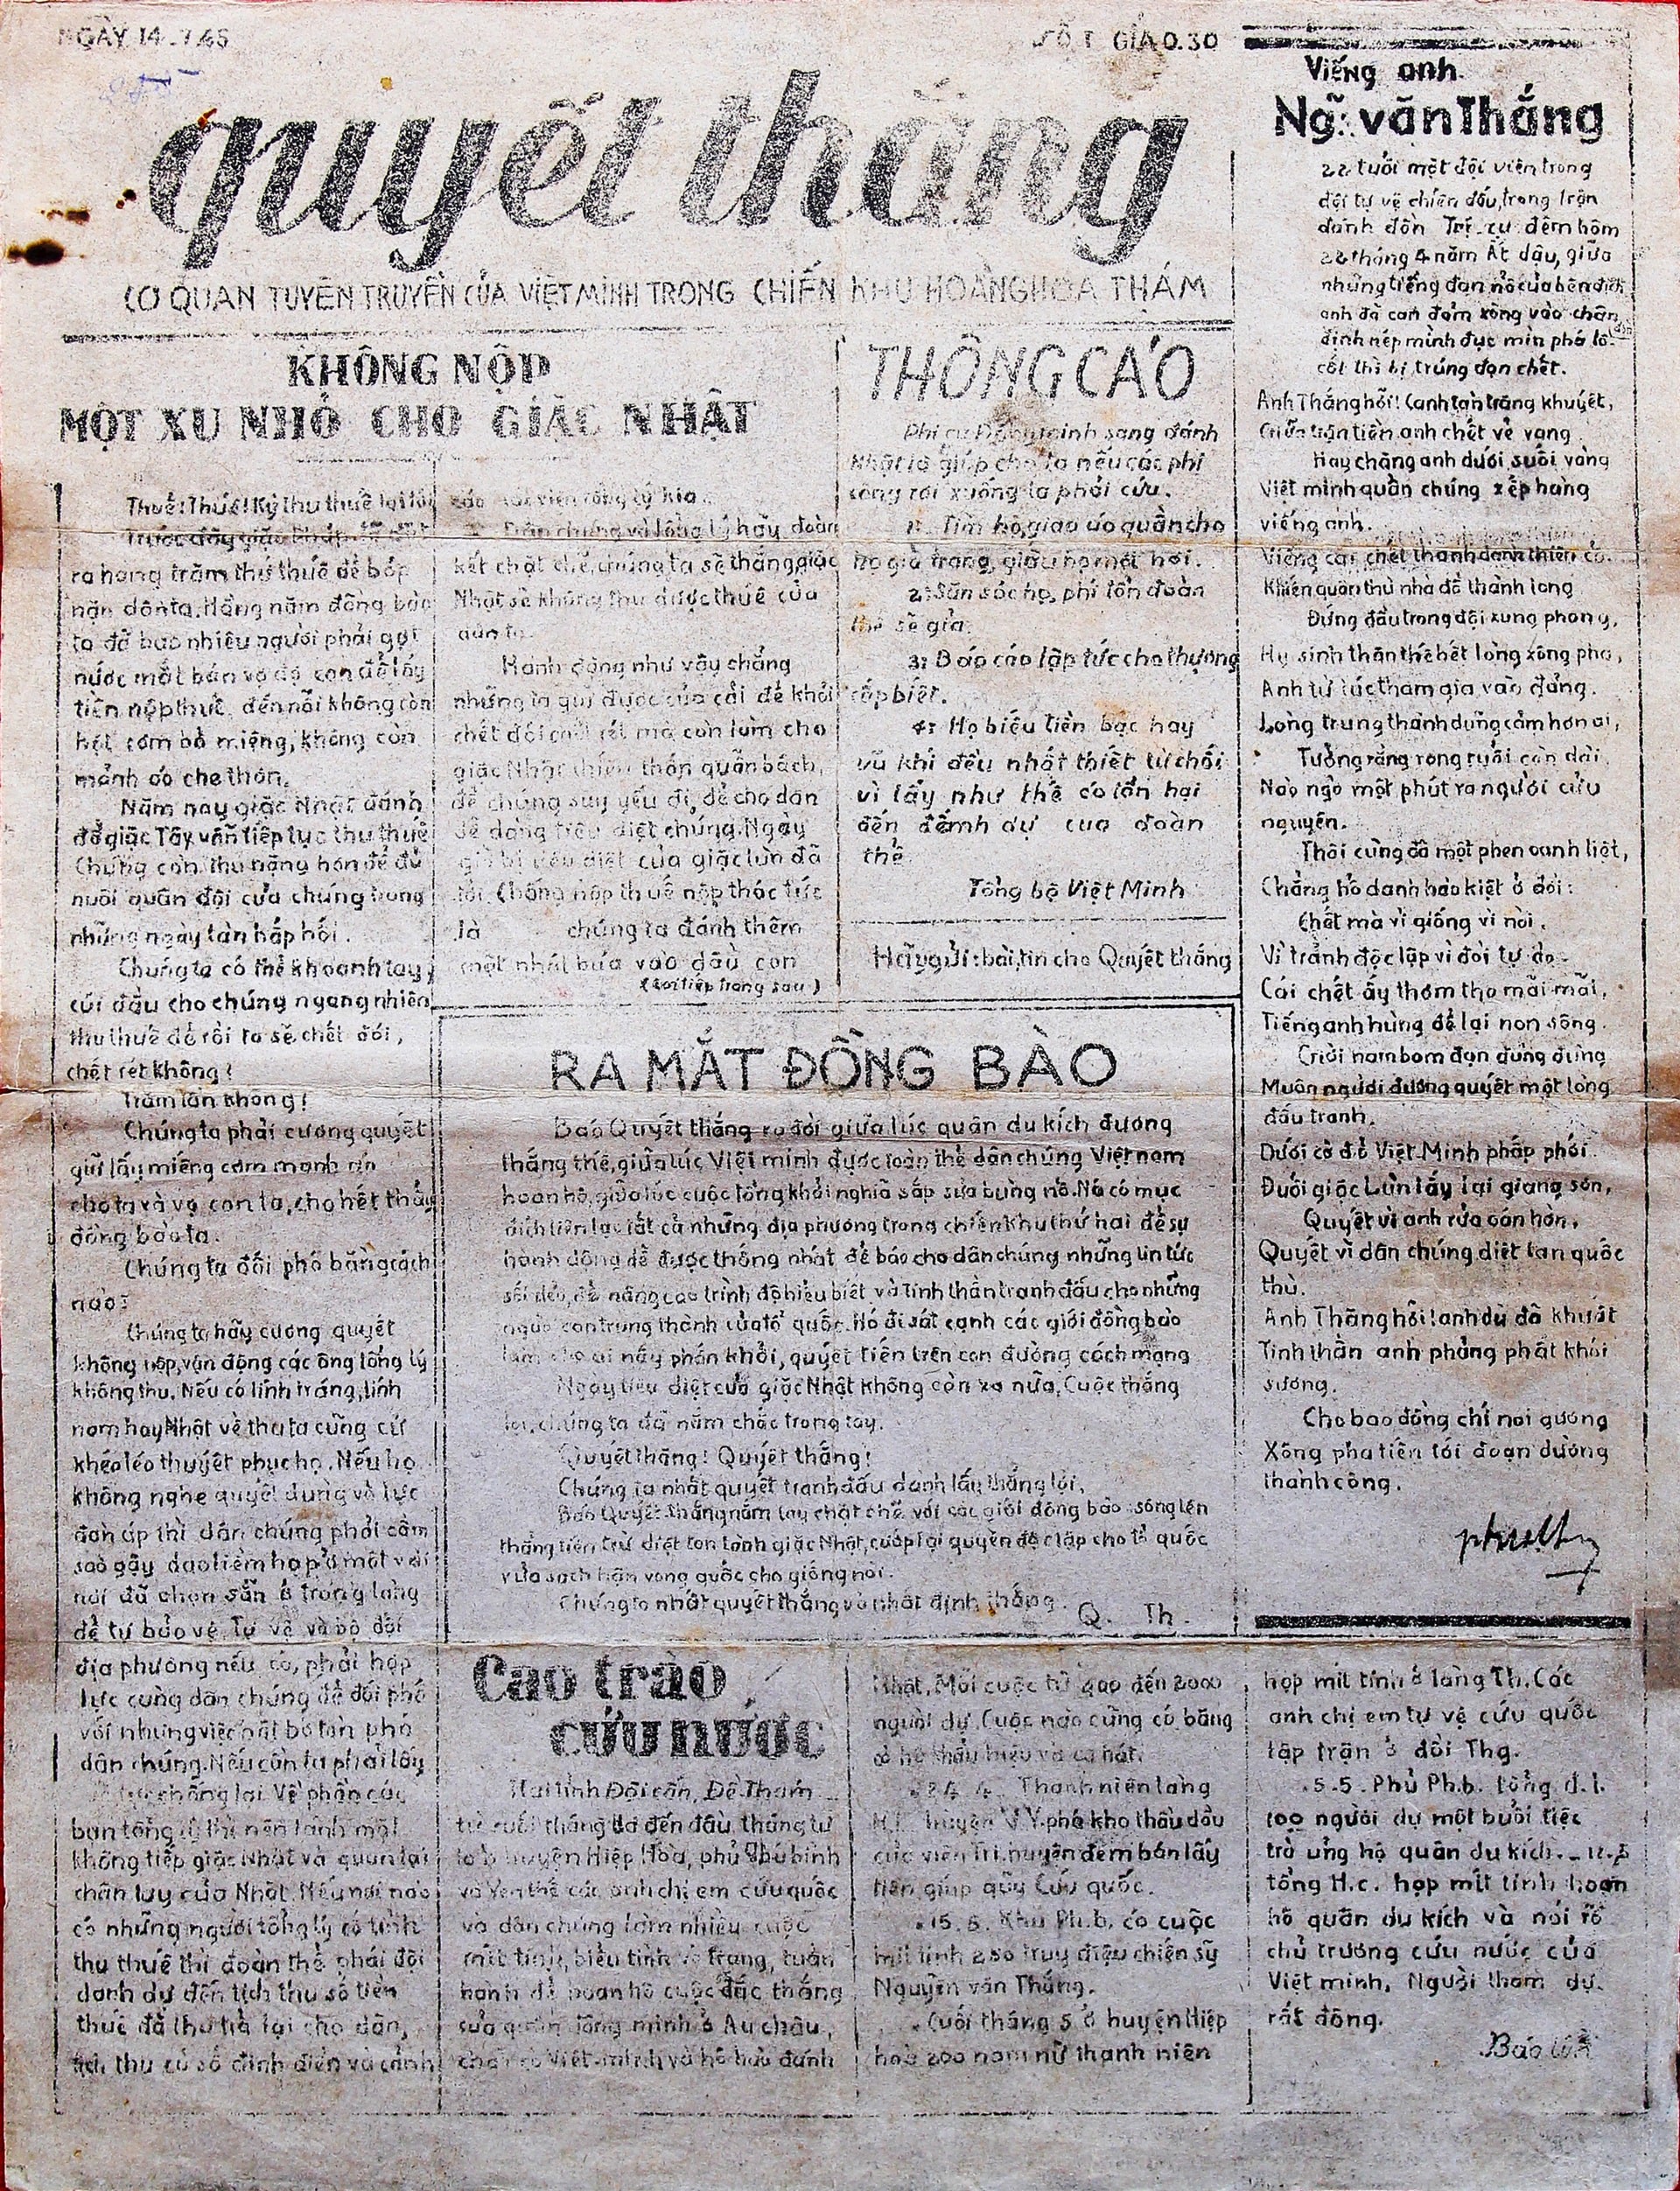 NGÀY 14-7.45
SỐ 1 GIÁ 0.30
quyết thắng
CƠ QUAN TUYÊN TRUYỀN CỦA VIỆT MINH TRONG CHIẾN KHU HOÀNG HOA THÁM
KHÔNG NỘP
MỘT XU NHỎ CHO GIẶC NHẬT
Thuế! Thuế! Kỳ thu thuế lại tới
Trước đây giặc Pháp
ra hàng trăm thứ thuế để bóp
nặn dân ta. Hàng năm đồng bào
ta đã bao nhiêu người phải gạt
nước mắt bán vợ đợ con để lấy
tiền nộp thuế, đến nỗi không còn
hột cơm bỏ miệng, không còn
mảnh áo che thân.
Năm nay giặc Nhật đánh
đổ giặc Tây vẫn tiếp tục thu thuế
Chúng còn thu nặng hơn để đủ
nuôi quân đội của chúng trong
những ngày tàn hấp hối.
Chúng ta có thể khoanh tay,
cúi đầu cho chúng ngang nhiên
thu thuế để rồi ta sẽ chết đói,
chết rét không?
Trăm lần không!
Chúng ta phải cương quyết
giữ lấy miếng cơm manh áo
cho ta và vợ con ta, cho hết thảy
đồng bào ta.
Chúng ta đối phó bằng cách
nào?
Chúng ta hãy cương quyết
không nộp, vận động các ông tổng lý
không thu. Nếu có lính tráng, lính
nam hay Nhật về thu ta cũng cứ
khéo léo thuyết phục họ. Nếu họ
không nghe quyết dùng vũ lực
đàn áp thì dân chúng phải cầm
sào gậy dao liềm họp ở một vài
nơi đã chọn sẵn ở trong làng
để tự bảo vệ. Tự vệ và bộ đội
địa phương nếu có, phải hợp
lực cùng dân chúng để đối phó
với những việc bắt bớ tàn phá
dân chúng. Nếu cần ta phải lấy
chống lại. Về phần các
bạn tổng lý thì nên lánh mặt
không tiếp giặc Nhật và quan lại
chân tay của Nhật. Nếu nơi nào
có những người tổng lý cố tình
thu thuế thì đoàn thể phái đội
danh dự đến tịch thu số tiền
thuế đã thu trả lại cho dân,
tịch thu cả sổ đinh điền và cảnh
cáo tổng lý kia.
Dân chúng và tổng lý hãy đoàn
kết chặt chẽ, chúng ta sẽ thắng, giặc
Nhật sẽ không thu được thuế của
dân ta.
Hành động như vậy chẳng
những ta giữ được của cải để khỏi
chết đói chết rét mà còn làm cho
giặc Nhật thiếu thốn quẫn bách,
để chúng suy yếu đi, để cho dân
dễ dàng tiêu diệt chúng. Ngày
giờ bị tiêu diệt của giặc lùn đã
tới. Chống nộp thuế nộp thóc tức
là chúng ta đánh thêm
một nhát búa vào đầu con
(coi tiếp trang sau)
THÔNG CÁO
Phi cơ Đồng minh sang đánh
Nhật là giúp cho ta nếu các phi
công rơi xuống ta phải cứu.
1: Tìm họ, giao áo quần cho
họ giả trang, giấu họ một nơi.
2: Săn sóc họ, phí tổn đoàn
thể sẽ giả.
3: Báo cáo lập tức cho thượng
cấp biết.
4: Họ biếu tiền bạc hay
vũ khí đều nhất thiết từ chối
vì lấy như thế có tổn hại
đến danh dự của đoàn
thể.
Tổng bộ Việt Minh
Hãy gửi: bài, tin cho Quyết thắng
RA MẮT ĐỒNG BÀO
Báo Quyết thắng ra đời giữa lúc quân du kích đương
thắng thế, giữa lúc Việt minh được toàn thể dân chúng Việt nam
hoan hô, giữa lúc cuộc tổng khởi nghĩa sắp sửa bùng nổ. Nó có mục
đích liên lạc tất cả những địa phương trong chiến khu thứ hai để sự
hành động để được thống nhất, để báo cho dân chúng những tin tức
sốt dẻo, để nâng cao trình độ hiểu biết và tinh thần tranh đấu cho những
người con trung thành của tổ quốc. Nó đi sát cạnh các giới đồng bào
làm cho ai nấy phấn khởi, quyết tiến trên con đường cách mạng
Ngày tiêu diệt của giặc Nhật không còn xa nữa. Cuộc thắng
lợi, chúng ta đã nắm chắc trong tay.
Quyết thắng! Quyết thắng!
Chúng ta nhất quyết tranh đấu dành lấy thắng lợi.
Báo Quyết thắng nắm tay chặt chẽ với các giới đồng bào sống lên
thẳng tiến trừ diệt tan tành giặc Nhật, cướp lại quyền độc lập cho tổ quốc
rửa sạch hận vong quốc cho giống nòi.
Chúng ta nhất quyết thắng và nhất định thắng.
Q. Th.
Viếng anh
Ng~: văn Thắng
22 tuổi một đội viên trong
đội tự vệ chiến đấu, trong trận
đánh đồn Trị-cụ đêm hôm
22 tháng 4 năm Ất dậu, giữa
những tiếng đạn nổ của bên địch
anh đã can đảm xông vào chân
định nép mình đục mìn phá lô-
cốt thì bị trúng đạn chết.
Anh Thắng hỡi! Canh tàn trăng khuyết,
Giữa trận tiền anh chết vẻ vang
Hay chăng anh dưới suối vàng
Việt minh quần chúng xếp hàng
viếng anh.
Viếng cái chết thanh danh thiên cổ
Khiến quân thù nhà đổ thành long
Đứng đầu trong đội xung phong,
Hy sinh thân thế hết lòng xông pha,
Anh từ lúc tham gia vào đảng.
Lòng trung thành dũng cảm hơn ai,
Tưởng rằng rong ruổi còn dài
Nào ngờ một phút ra người cửu
nguyên.
Thôi cũng đã một phen oanh liệt,
Chẳng hổ danh hào kiệt ở đời:
Chết mà vì giống vì nòi.
Vì tranh độc lập vì đời tự do.
Cái chết ấy thơm tho mãi mãi,
Tiếng anh hùng để lại non sông.
Trời nam bom đạn đùng đùng
Muôn người đương quyết một lòng
đấu tranh.
Dưới cờ đỏ Việt-Minh phấp phới
Đuổi giặc Lùn lấy lại giang sơn,
Quyết vì anh rửa oán hờn,
Quyết vì dân chúng diệt tan quốc
thù.
Anh Thắng hỡi! anh dù đã khuất
Tinh thần anh phảng phất khói
sương.
Cho bao đồng chí noi gương
Xông pha tiến tới đoạn đường
thành công.
Cao trào
cứu nước
Hai tỉnh Đội cấn, Đề Thám
từ cuối tháng ba đến đầu tháng tư
ta ở huyện Hiệp Hòa, phủ Phú bình
và Yên thế các anh chị em cứu quốc
và dân chúng làm nhiều cuộc
mít tinh, biểu tình võ trang, tuần
hành để hoan hô cuộc đắc thắng
của quân đồng minh ở Âu châu,
chào cờ Việt-minh và hô hào đánh
Nhật. Mỗi cuộc từ 400 đến 2000
người dự. Cuộc nào cũng có băng
cờ hô khẩu hiệu và ca hát.
24. 4. Thanh niên làng
H.L. huyện V.Y. phá kho thầu dầu
của viên tri huyện đem bán lấy
tiền giúp qũy Cứu quốc.
15. 5. Khu Ph.b. có cuộc
mít tinh 250 truy điệu chiến sỹ
Nguyễn văn Thắng.
Cuối tháng 5 ở huyện Hiệp
hoà 200 nam nữ thanh niên
họp mít tinh ở làng Th. Các
anh chị em tự vệ cứu quốc
tập trận ở đồi Thg.
5.5. Phủ Ph.b. tổng đ.l.
100 người dự một buổi tiệc
trà ủng hộ quân du kích.
tổng H.c. họp mít tinh hoan
hô quân du kích và nói rõ
chủ trương cứu nước của
Việt minh. Người tham dự
rất đông.